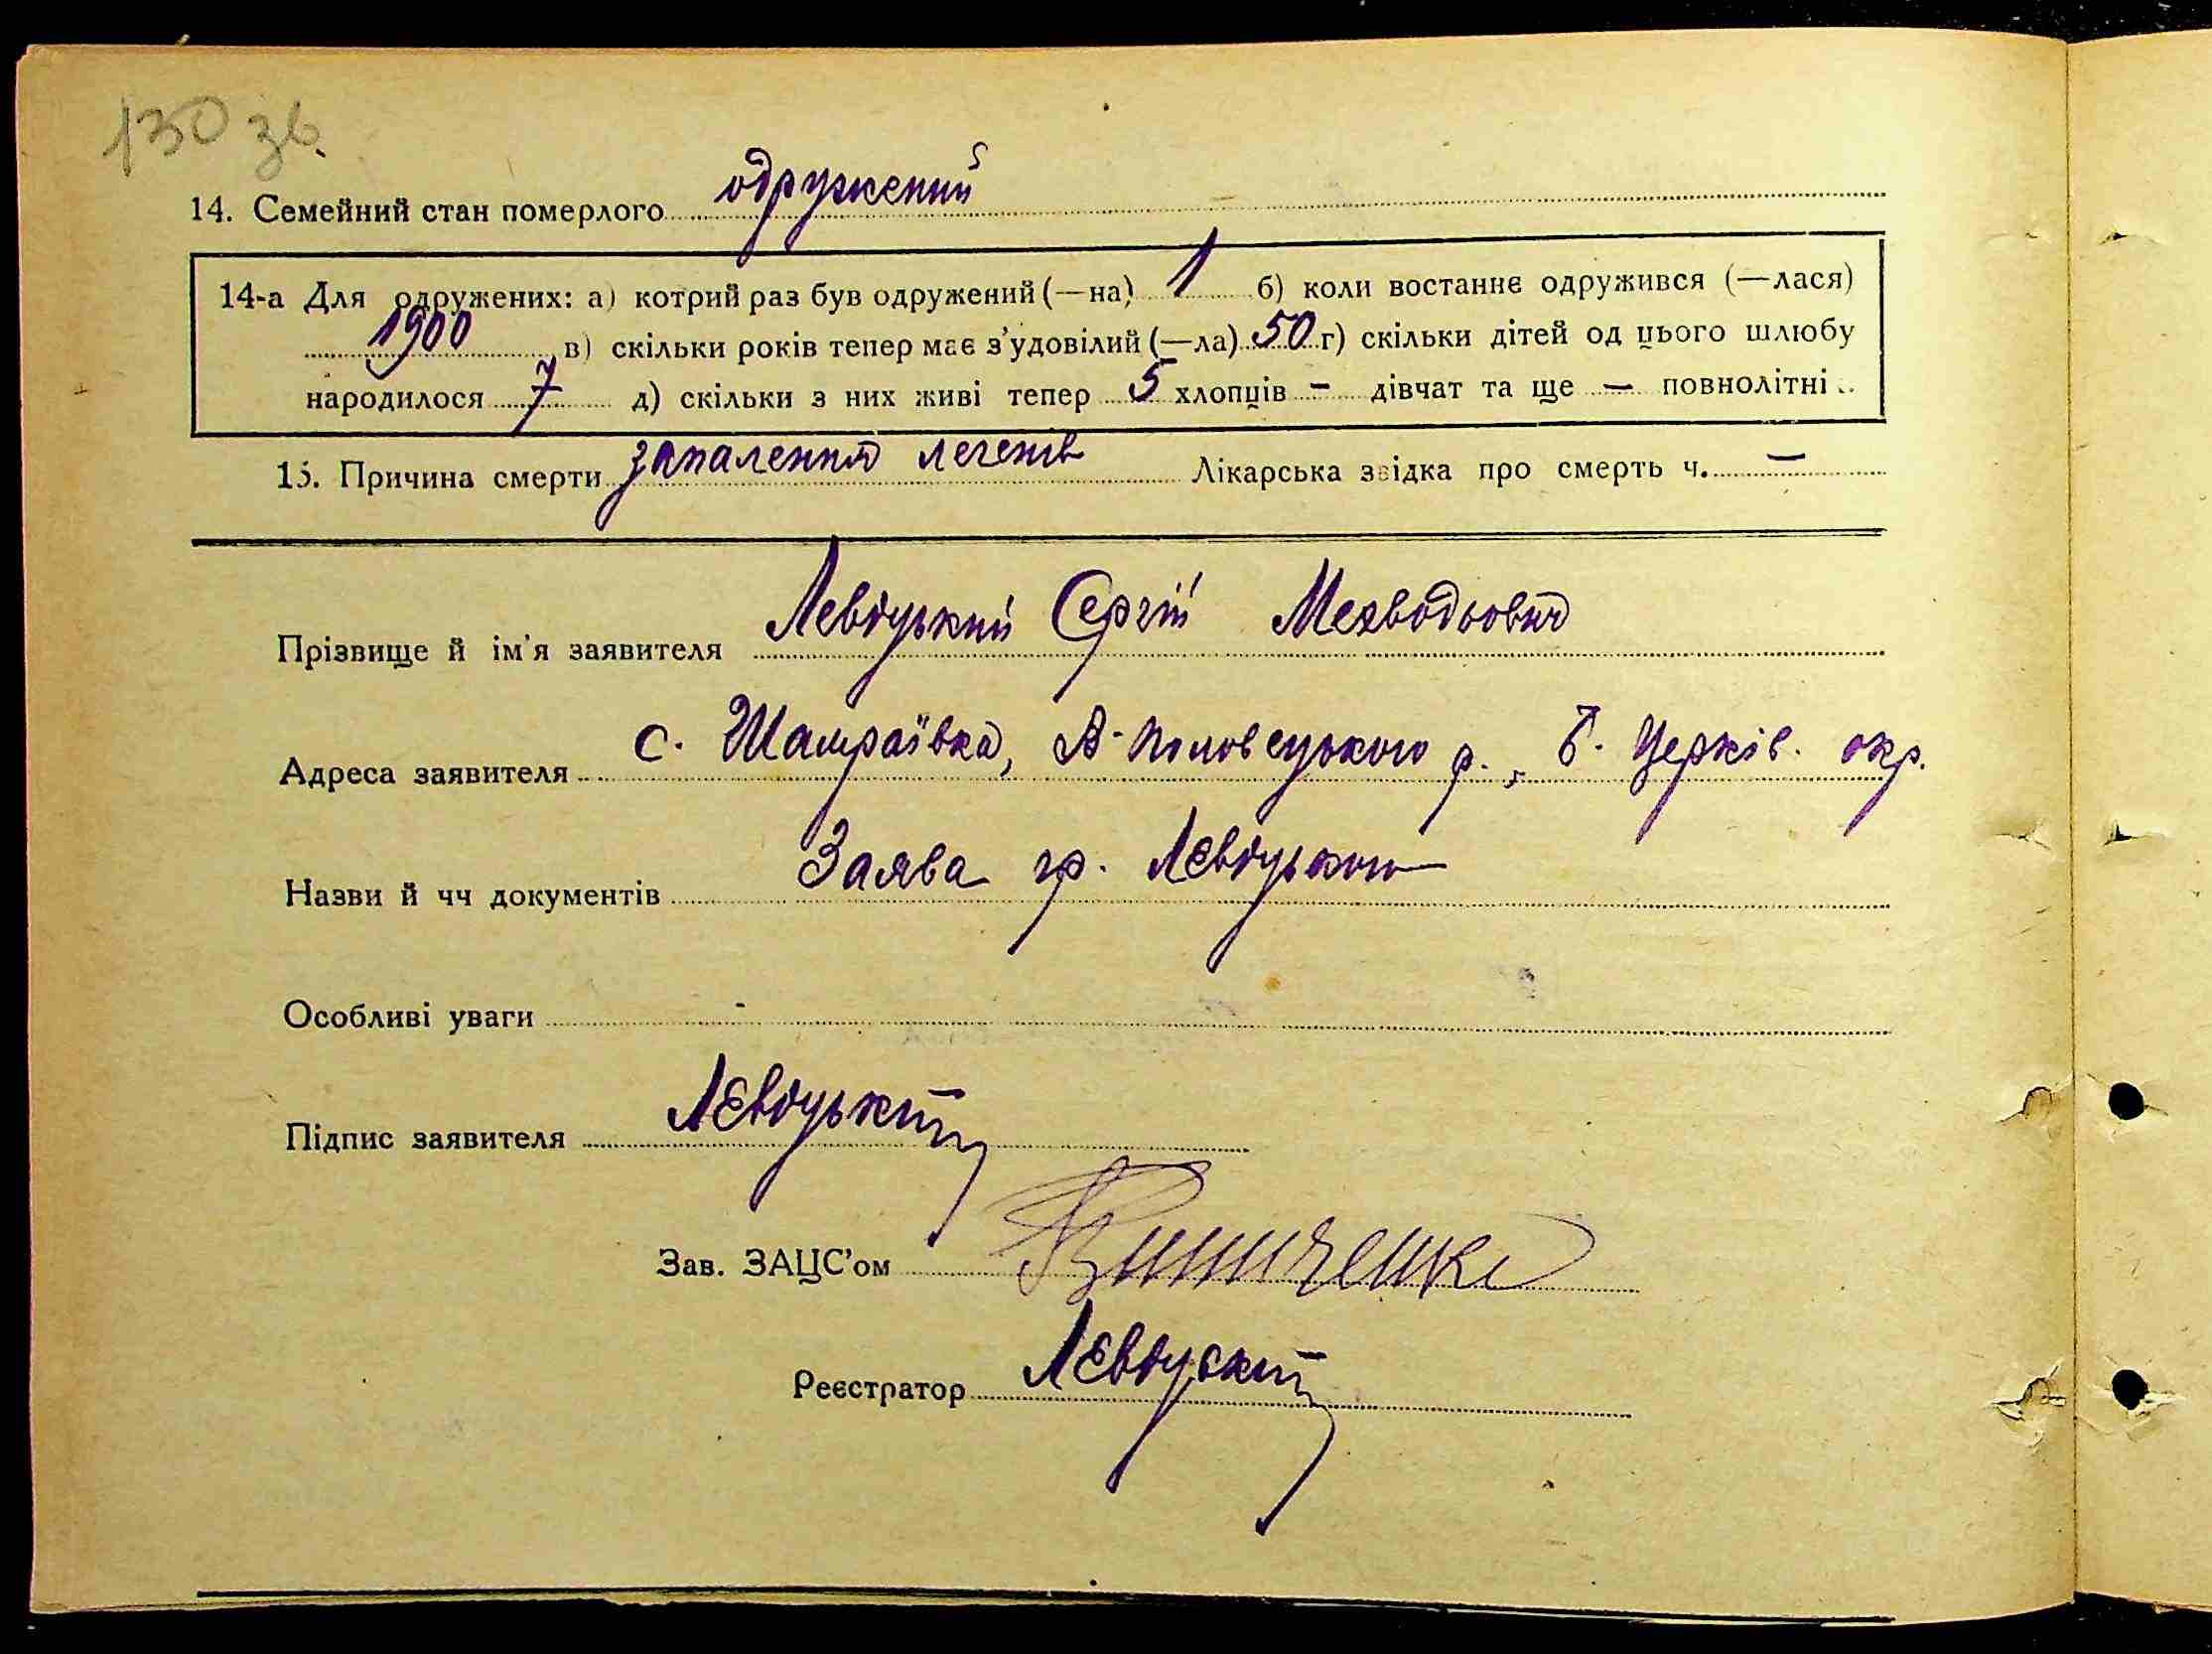 130 зв.
14. Семейний стан померлого одружений
14-а Для одружених: а) котрий раз був одружений (—на) 1 б) коли востаннє одружився (—лася)
1900 в) скільки років тепер має з'удовілий (—ла) 50 г) скільки дітей од цього шлюбу
народилося 7 д) скільки з них живі тепер 5 хлопців - дівчат та ще — повнолітні..
15. Причина смерти запалення легенів Лікарська звідка про смерть ч. —
Прізвище й ім'я заявителя Левдуцький Сергій
Адреса заявителя с. Шамраївка, В-Половецького р., Б. Церків. окр.
Назви й чч документів Заява гр. Левдуцького
Особливі уваги -
Підпис заявителя Левдуцький
Зав. ЗАЦС'ом Винниченко
Реєстратор Левдуцький